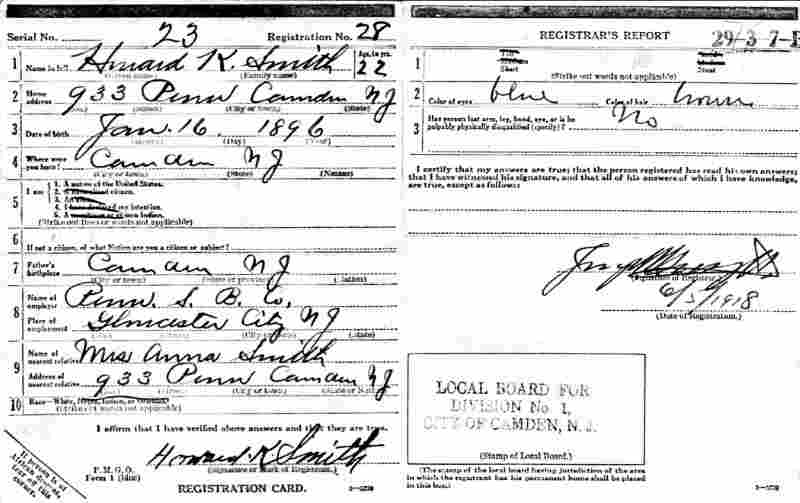 Serial No. 23 Registration No. 28
1 Name in full Howard K. Smith Age, in yrs. 22
(Family name)
2 Home address 933 Penn Camden NJ
(City or town) (State)
3 Date of birth Jan. 16 1896
(Day)
4 Where were you born? Camden NJ
(City or town) (State) (Nation)
5 I am
1. A native of the United States.
citizen.
my intention.
(Strike out lines or words not applicable)
6 If not a citizen, of what Nation are you a citizen or subject?
7 Father's birthplace Camden NJ
(City or town)
8 Name of employer Penn. S. B. Co.
Place of employment Gloucester City NJ
(City or town) (State)
9 Name of nearest relative Mrs Anna Smith
Address of nearest relative 933 Penn Camden NJ
(City or town)
10 Race—White,
(Strike out words not applicable)
I affirm that I have verified above answers and that they are true.
Howard K Smith
P. M. G. O.
Form 1 (blue)
(Signature or Mark of Registrant.)
REGISTRATION CARD.
If person is of African descent, tear off this corner.
REGISTRAR'S REPORT
29-3 7-
1
Short Stout
(Strike out words not applicable)
2 Color of eyes blue Color of hair brown
3 Has person lost arm, leg, hand, eye, or is he palpably physically disqualified (specify)? No
I certify that my answers are true; that the person registered has read his own answers;
that I have witnessed his signature, and that all of his answers of which I have knowledge,
are true, except as follows:
(Signature of Registrar.)
6/5/1918
(Date of Registration.)
LOCAL BOARD FOR
DIVISION No 1,
CITY OF CAMDEN, N. J.
(Stamp of Local Board.)
(The stamp of the local board having jurisdiction of the area
in which the registrant has his permanent home shall be placed
in this box.)